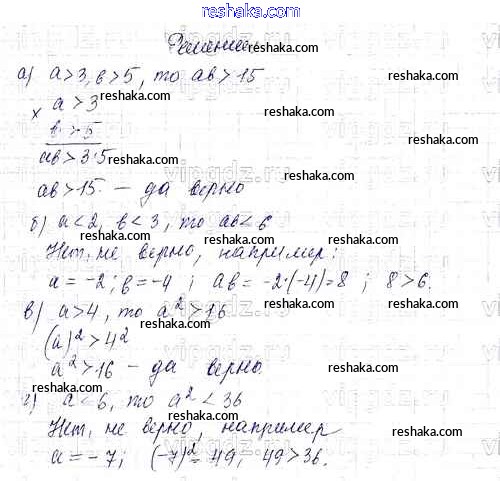 Решение reshaka.com
а) a>3, b>5, то ab>15 reshaka.com
× a>3 reshaka.com
b>5 reshaka.com
ab>3·5 reshaka.com
ab>15 – да верно reshaka.com
б) a<2, b<3, то ab<6 reshaka.com
Нет, не верно, например: reshaka.com
a=-2; b=-4; ab=-2·(-4)=8; 8>6. reshaka.com
в) a>4, то a²>16 reshaka.com
(a)²>4² reshaka.com
a²>16 – да верно. reshaka.com
г) a<6, то a²<36 reshaka.com
Нет, не верно, например reshaka.com
a=-7; (-7)²=49, 49>36. reshaka.com